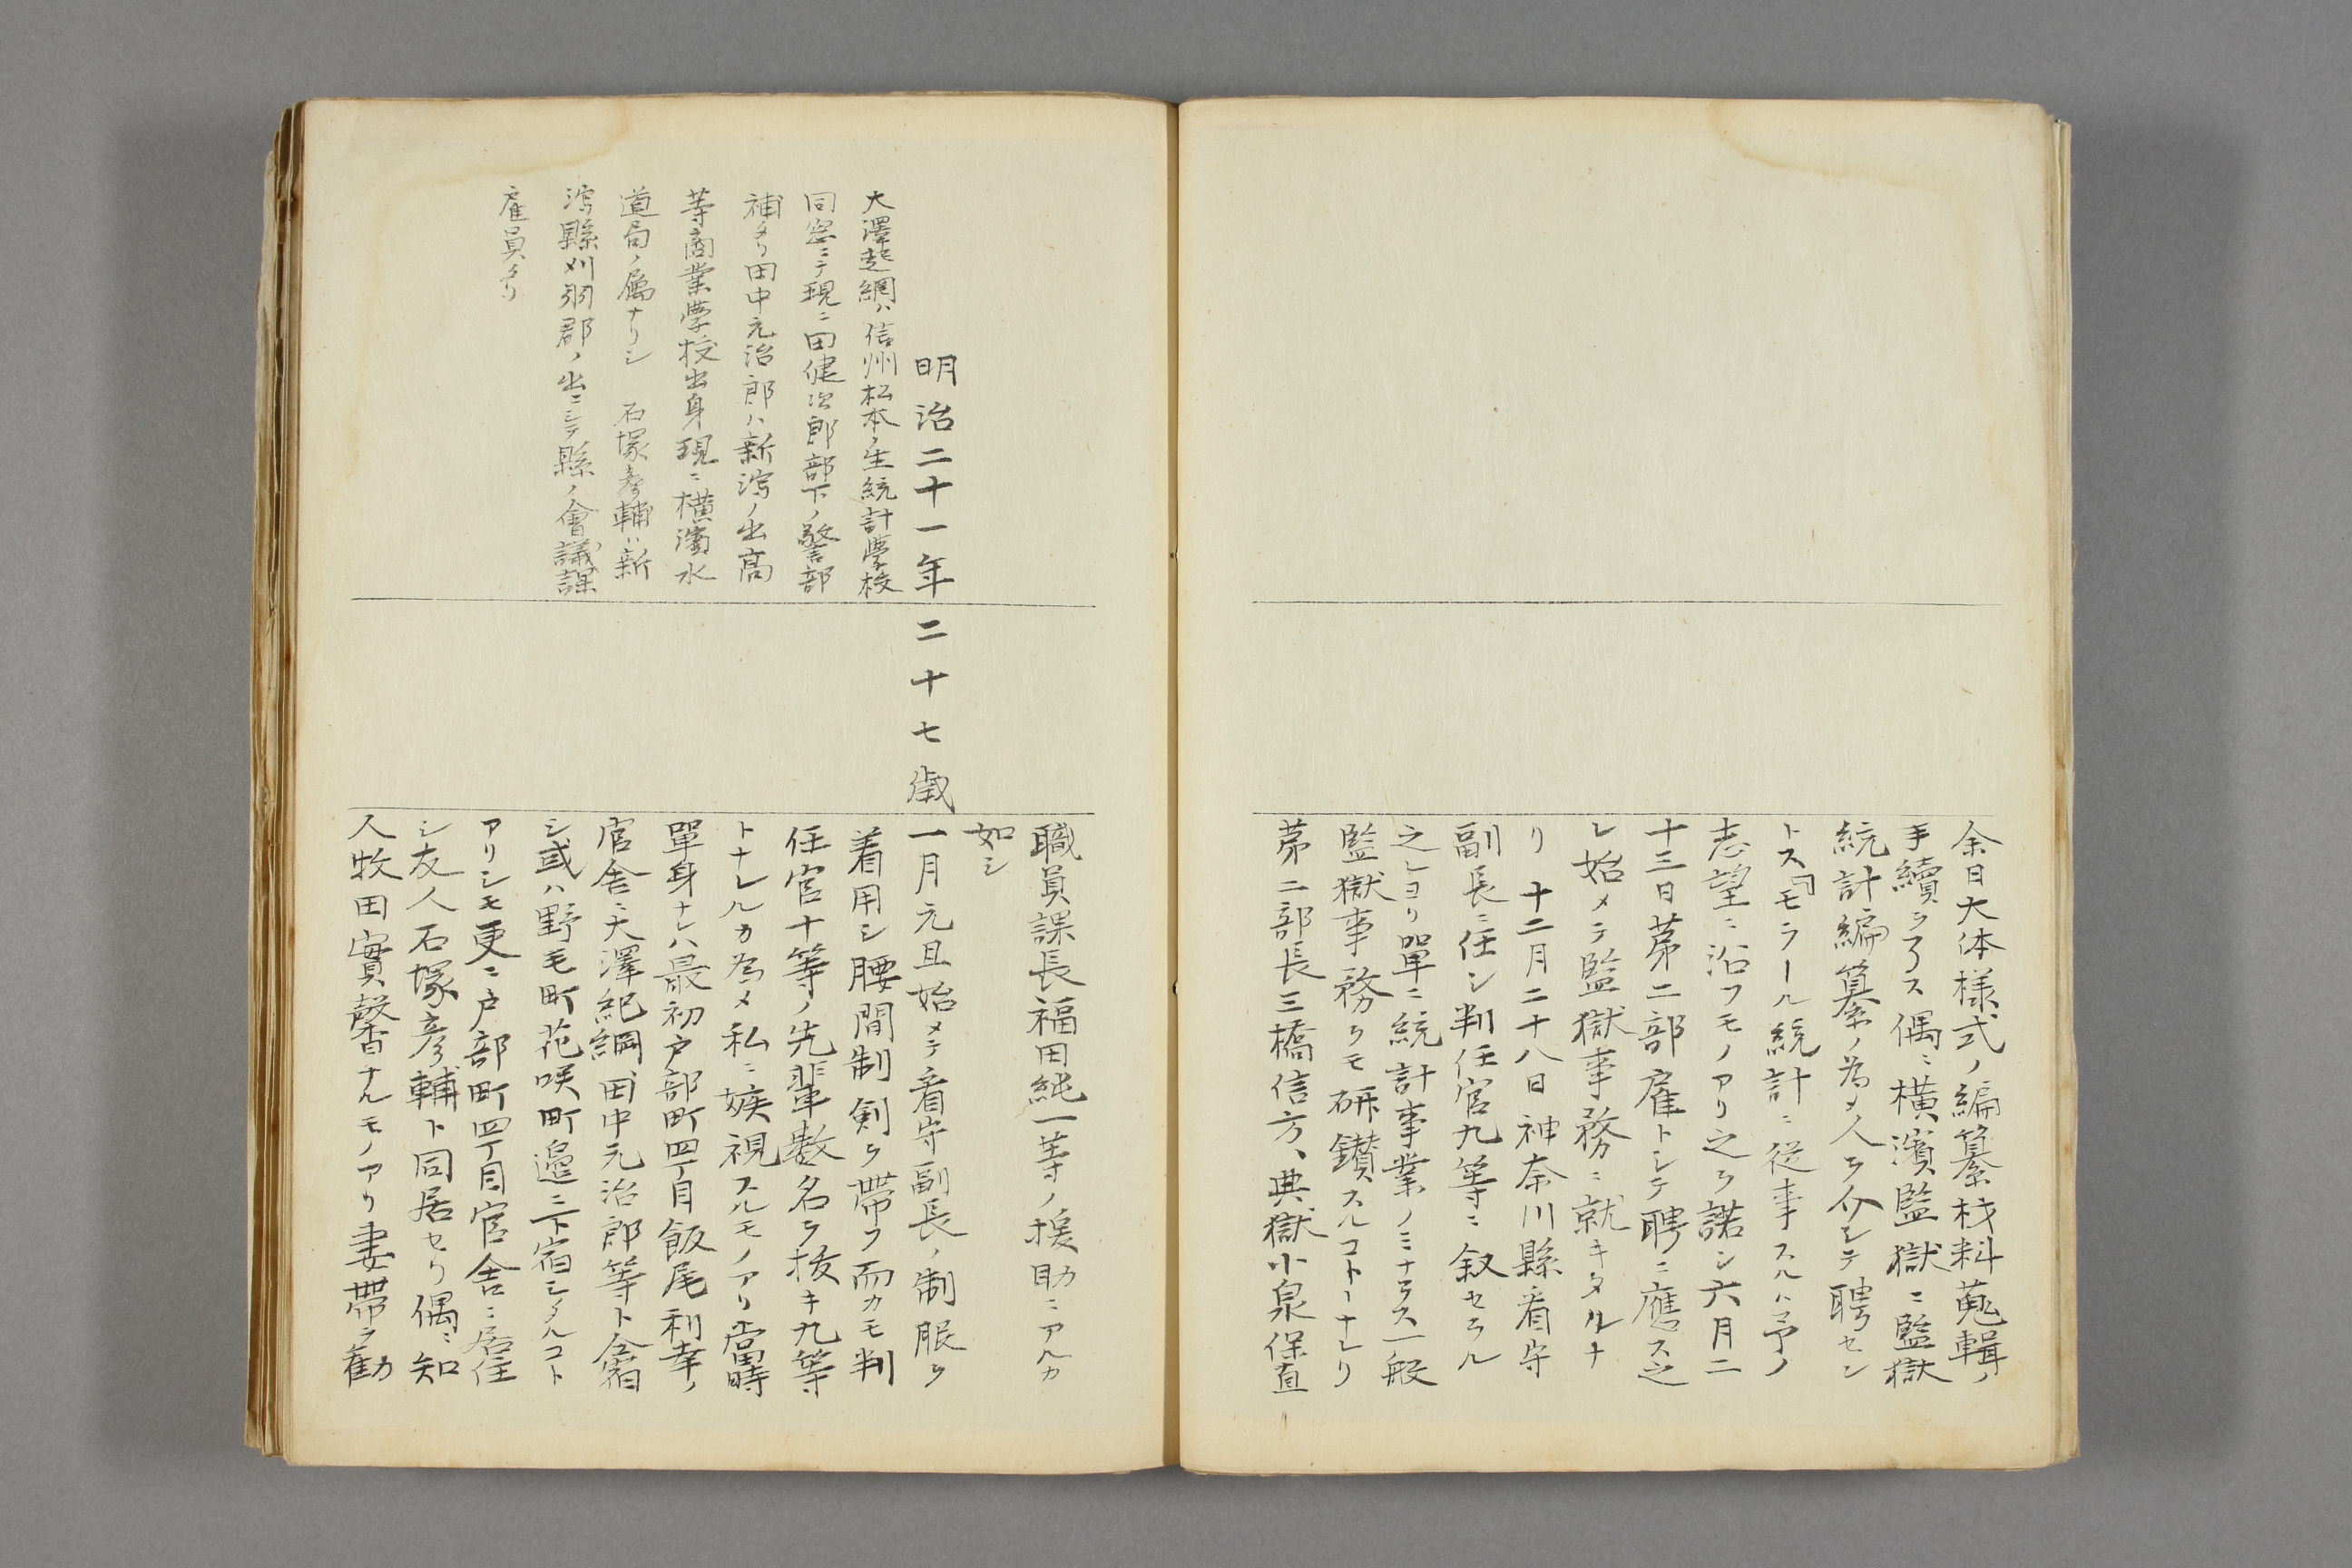 余日大体様式ノ編纂材料蒐輯ノ
手續ヲ了ス偶ニ横濱監獄ニ監獄
統計編纂ノ為メ人ヲ介シテ聘セン
トス「モラール統計ニ従事スルハ予ノ
志望ニ沿フモノアリ之ヲ諾シ六月二
十三日第二部雇トシテ聘ニ應ス之
レ始メテ監獄事務ニ就キタルナ
リ 十二月二十八日神奈川縣看守
副長ニ任シ判任官九等ニ叙セラル
之レヨリ單ニ統計事業ノミナラス一般
監獄事務ヲモ研鑚スルコトヽナレリ
第二部長三橋信方、典獄小泉保直
職員課長福田純一等ノ援助ニアルカ
如シ
明治二十一年
二十七歳
一月元旦始メテ看守副長ノ制服ヲ
着用シ腰間制剣ヲ帯フ而カモ判
任官十等ノ先輩數名ヲ抜キ九等
トナレルカ為メ私ニ嫉視スルモノアリ當時
單身ナレハ最初戸部町四丁目飯尾利幸ノ
官舎ニ大澤紀綱、田中元治郎等ト仝宿
シ或ハ野毛町花咲町邉ニ下宿シタルコト
アリシモ更ニ戸部町四丁目官舎ニ居住
シ友人石塚彦輔ト同居セリ偶ニ知
人牧田實馨ナルモノアリ妻帯ヲ勸
大澤起綱ハ信州松本ノ生統計學校
同窓ニテ現ニ田健次郎部下ノ警部
補タリ田中元治郎ハ新潟ノ出高
等商業學校出身現ニ横濱水
道局ノ属ナリシ 石塚彦輔ハ新
潟縣刈羽郡ノ出ニシテ縣ノ會議課
雇員タリ